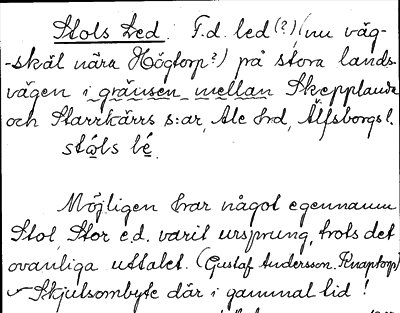 Stols Led. F.d. led (?) (nu väg-
-skäl nära Högtorp?) på stora lands-
vägen i gränsen mellan Skepplanda
och Starrkärrs s:ar, Ale hrd, Älfsborgs l.
stóls lé
Möjligen har något egennamn
Stol, Stor e.d. varit ursprung, trots det
ovanliga uttalet. (Gustaf Andersson. Knaptorp)
Skjutsombyte där i gammal tid!